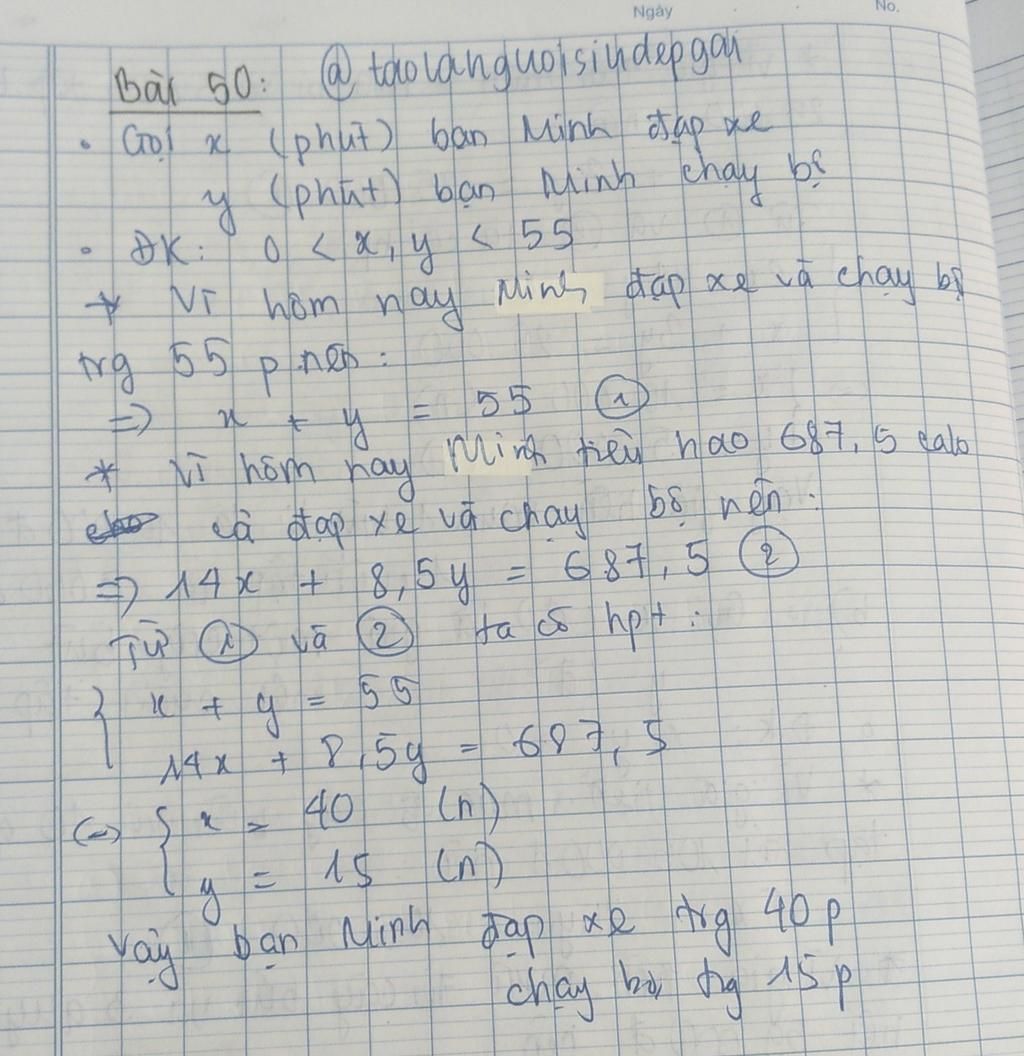 Ngày No.
Bài 50: @taolanguoisiudepgai
• Gọi x (phút) bạn Minh đạp xe
y (phút) bạn Minh chạy bộ
• ĐK: 0 < x, y < 55
* Vì hôm nay Minh đạp xe và chạy bộ
trg 55 p nên:
=> x + y = 55 ①
* Vì hôm nay Minh tiêu hao 687,5 calo
cả đạp xe và chạy bộ nên:
=> 14x + 8,5y = 687,5 ②
Từ ① và ② ta có hpt:
{ x + y = 55
14x + 8,5y = 687,5
(=) { x = 40 (n)
y = 15 (n)
Vậy bạn Minh đạp xe trg 40p
chạy bộ trg 15p